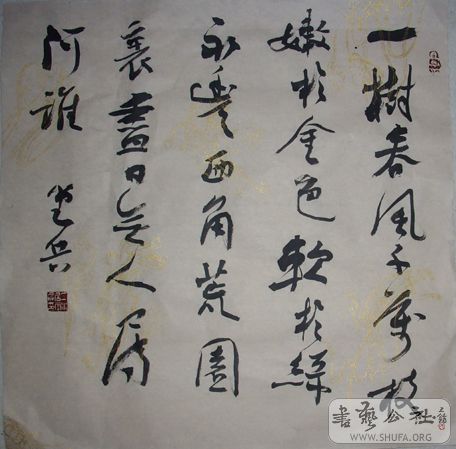 一樹春風千萬枝
嫩於金色軟於絲
永豐西角荒園
裏盡日無人屬
阿誰
書藝公社
WWW.SHUFA.ORG